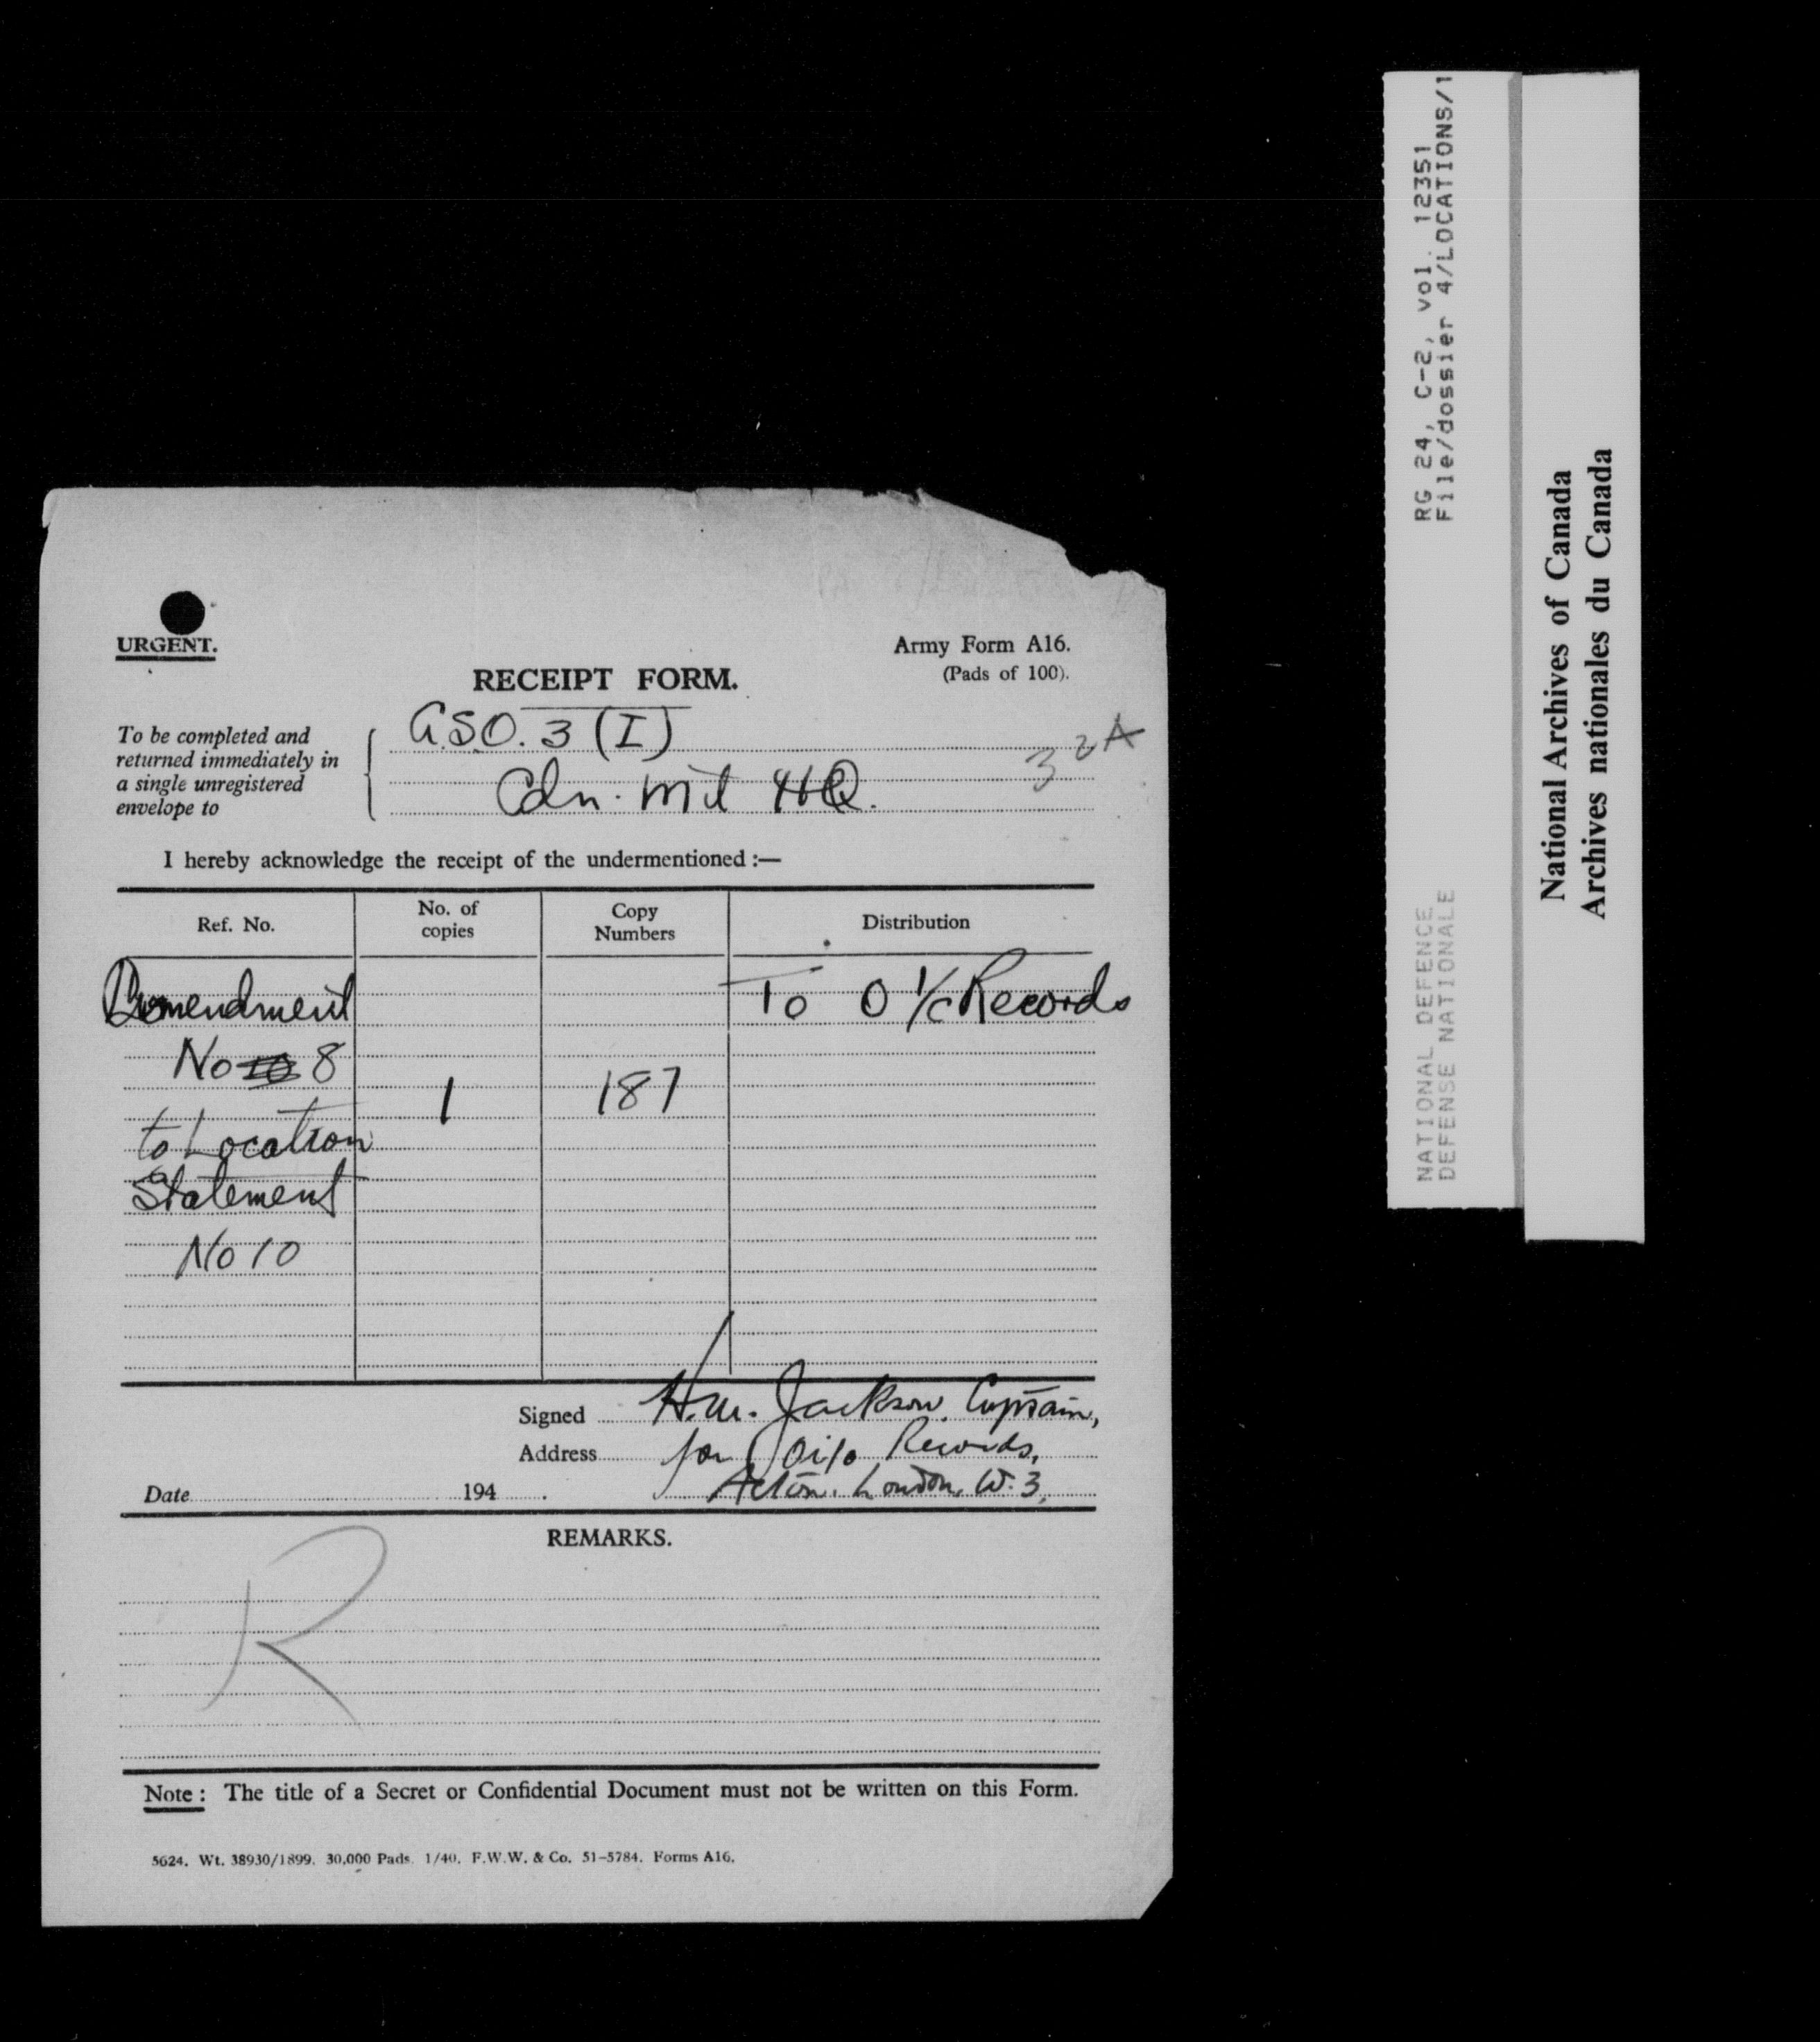 URGENT.
Army Form A16.
(Pads of 100).
RECEIPT FORM.
To be completed and
returned immediately in
a single unregistered
envelope to
G.S.O. 3 (I)
32A
Cdn. Mil HQ.
I hereby acknowledge the receipt of the undermentioned :—
Ref. No.
No. of
copies
Copy
Numbers
Distribution
Amendment
To O i/c Records
No 10 8
1
187
to Location
Statement
No 10
Signed H.M. Jackson. Captain,
Address for O i/c Records,
Acton. London. W. 3.
Date 194 .
REMARKS.
R
Note : The title of a Secret or Confidential Document must not be written on this Form.
5624. Wt. 38930/1899. 30,000 Pads. 1/40. F.W.W. & Co. 51-5784. Forms A16.
NATIONAL DEFENCE RG 24, C-2, vol. 12351
DEFENSE NATIONALE File/dossier 4/LOCATIONS/1
National Archives of Canada
Archives nationales du Canada